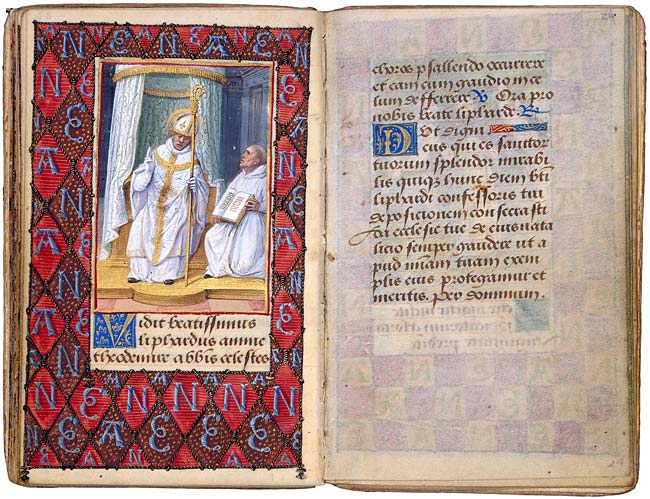 Vidit beatissimus
liphardus anime
theodemire abbis celestes
choros psallendo occurrere
et eam cum gaudio in ce
lum defferere V Ora pro
nobis beate lipharde R
Vt digni
Deus qui es sanctor
tuorum splendor mirabi
lis quiqz hunc diem bti
liphardi confessoris tui
deposicionem consecrasti
da ecclesie tue de eius nata
licio semper gaudere vt a
pud miam tuam exem
plis eius protegamur et
meritis. Per dominum.